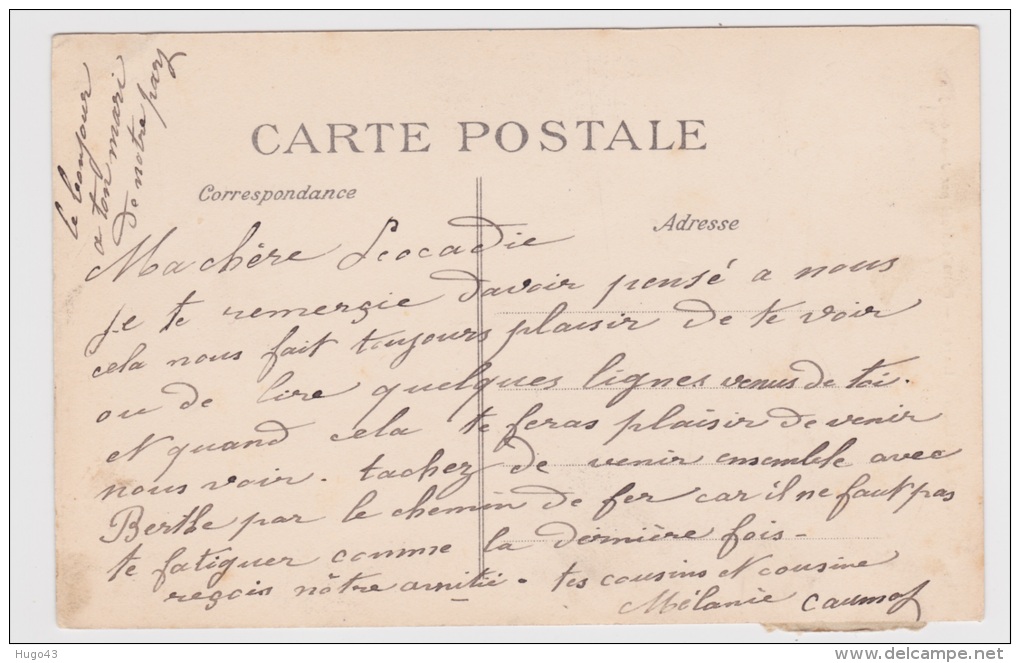 le bonjour
a ton mari
de notre part
CARTE POSTALE
Correspondance
Adresse
Ma chère Léocadie
je te remergie davoir pensé a nous
cela nous fait toujours plaisir de te voir
ou de lire quelques lignes venus de toi.
et quand cela te feras plaisir de venir
nous voir. tachez de venir ensemble avec
Berthe par le chemin de fer car il ne faut pas
te fatiguer comme la dernière fois -
reçois nôtre amitié. tes cousins et cousine
Mélanie
Hugo43
delcampe.net